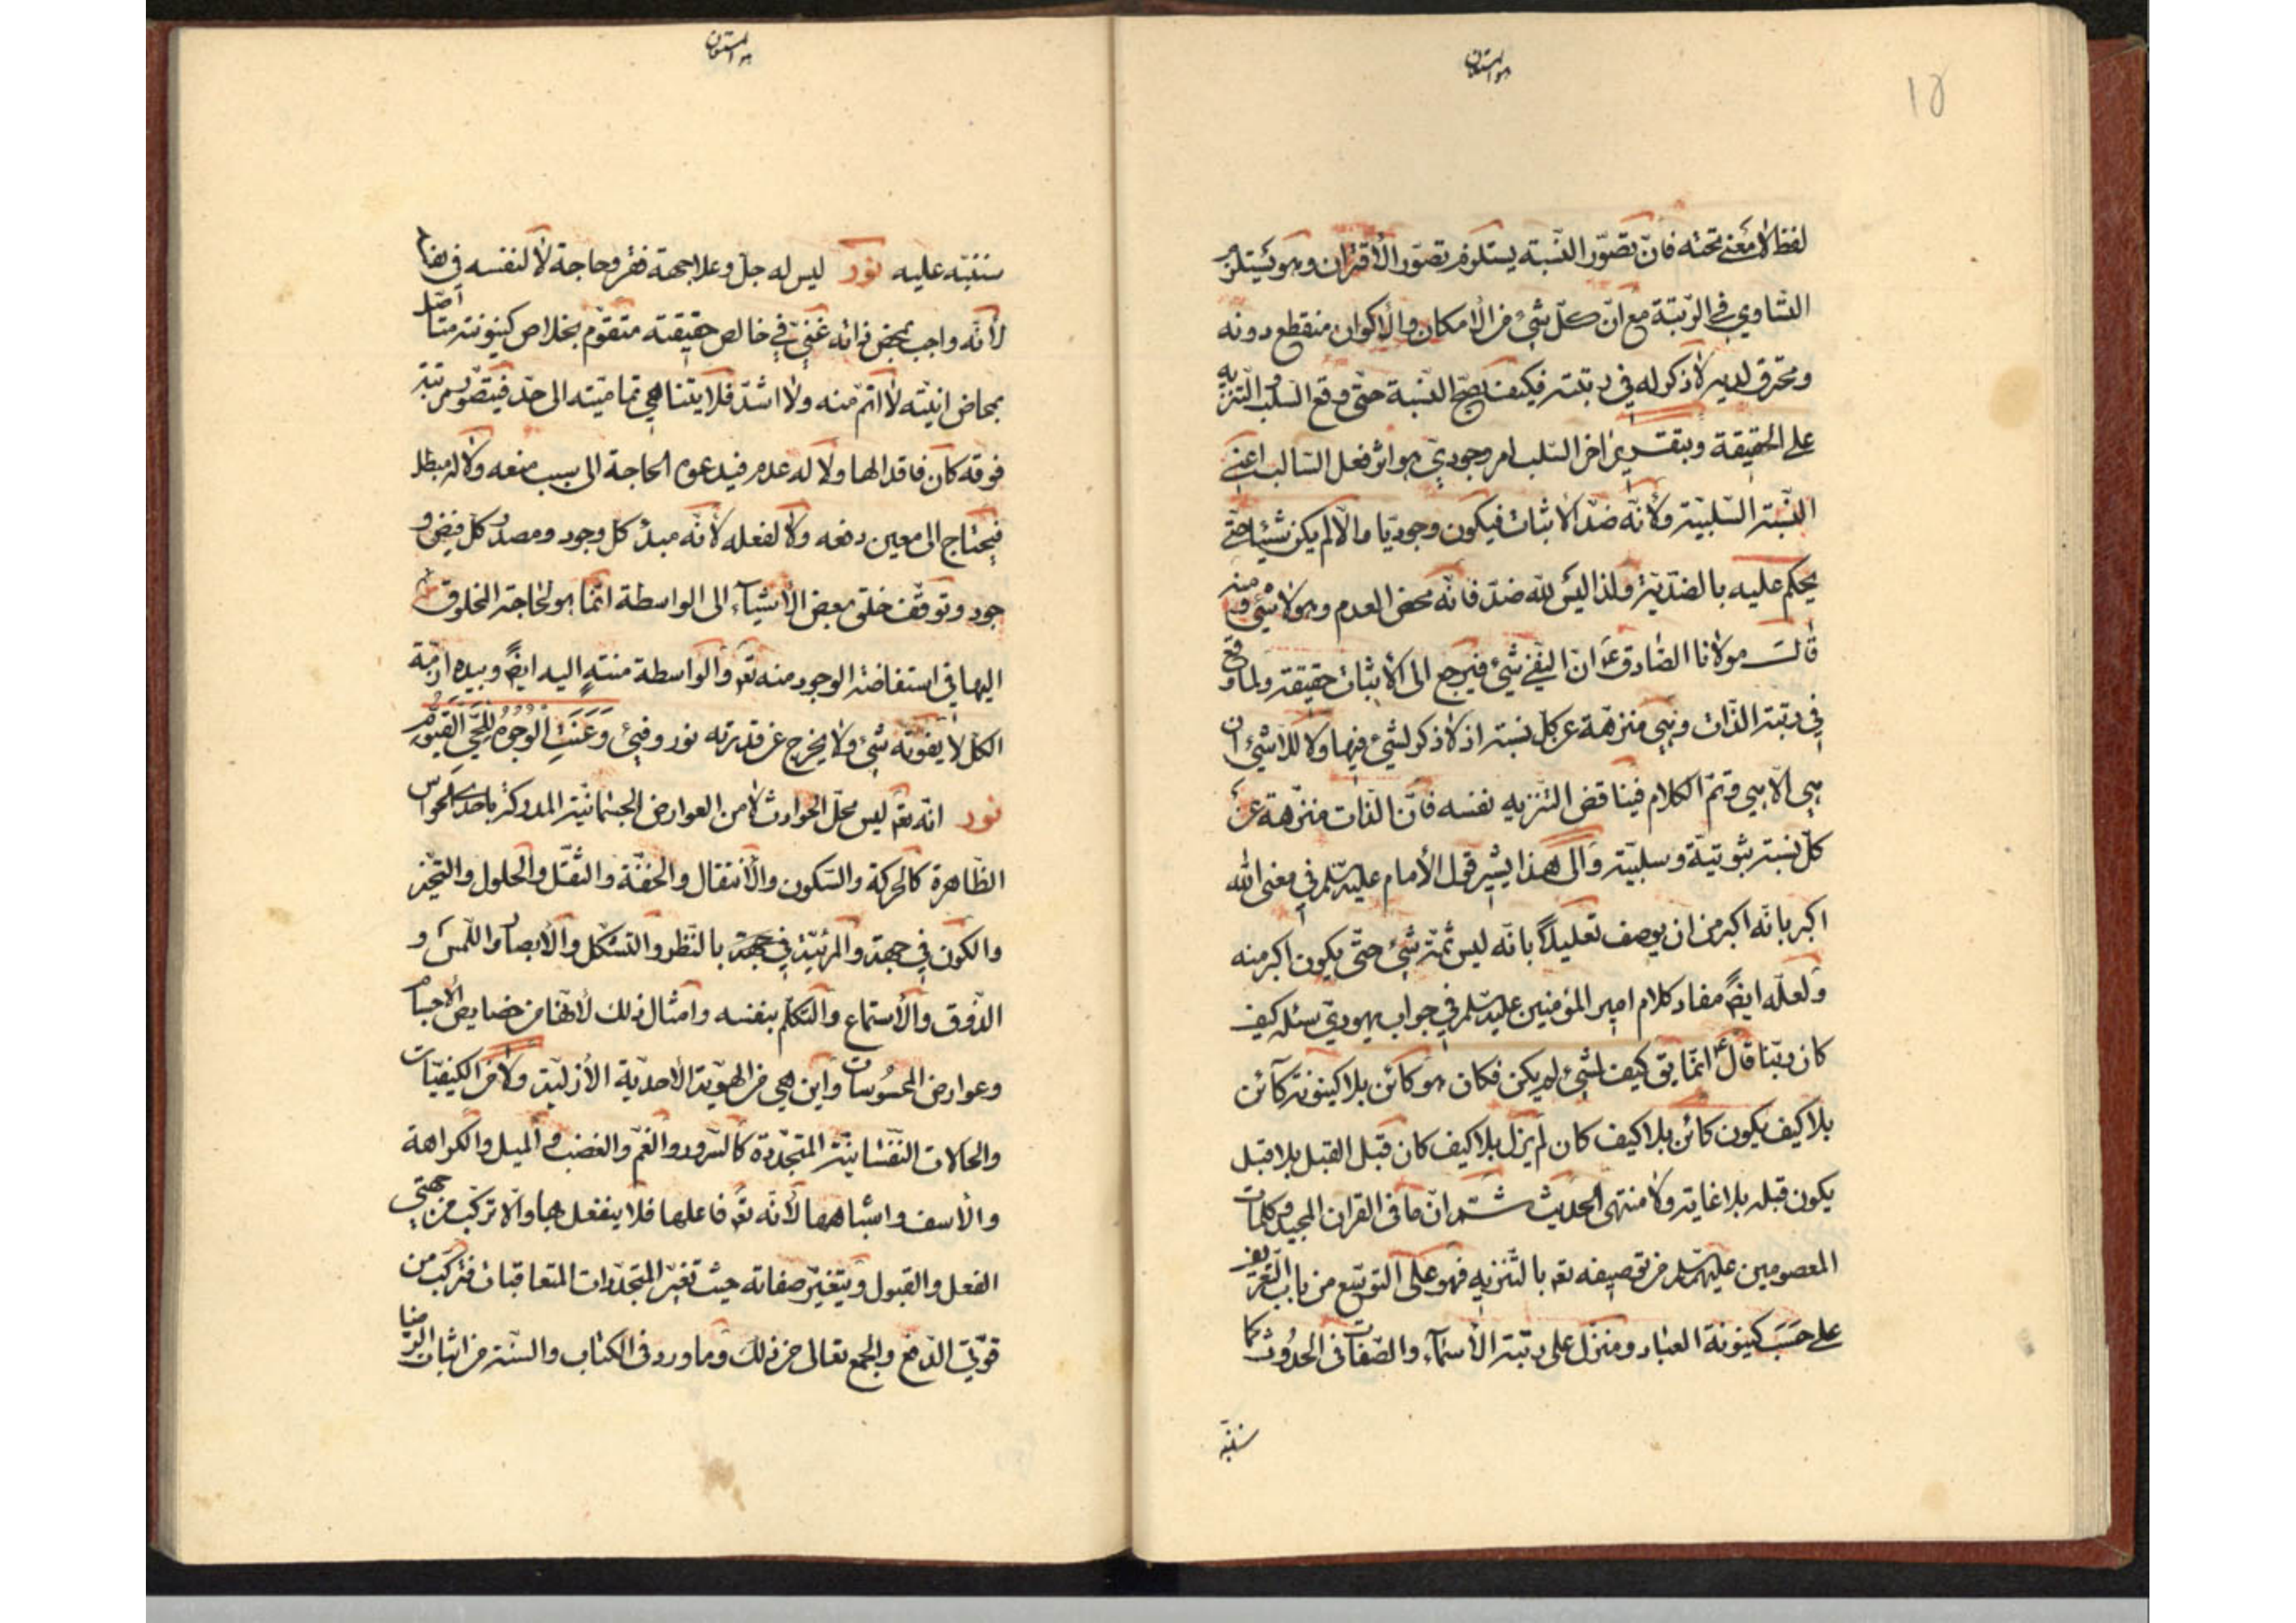 هو المستعان
١٥
لفظ لا معنى تحته فانّ تصوّر النّسبة يستلزم تصوّر الأقتران وهو يستلزم
التّساوي في الرّتبة مع انّ كلّ شيء من الأمكان والأكوان منقطع دونه
ومحترق لديه لا ذكر له في رتبته فكيف يصحّ النّسبة حتّى وقع السّلب والتّنزيه
على الحقيقة وبتقرير اخر السّلب امر وجوديّ هو اثر فعل السّالب اعني
النّسبة السّلبيّة ولأنّه ضدّ الاثبات فيكون وجوديّا والّا لم يكن شيئا حتّى
يحكم عليه بالضدّيّة ولذا ليس لله ضدّ فانّه محض العدم وهو لا شيء ومنه
قال مولانا الصّادق ع انّ النّفي شيء فيرجع الى الأثبات حقيقة ولما وقع
في رتبة الذّات وهي منزّهة عن كلّ نسبة اذ لا ذكر لشيء فيها ولا للّاشيء ان
هي الّا هي وتمّ الكلام فيناقض التّنزيه نفسه فانّ الذّات منزّهة عن
كلّ نسبة ثبوتيّة وسلبيّة والى هذا يشير قول الأمام عليه السّلم في معنى الله
اكبر بانّه اكبر من ان يوصف تعليلاً بانّه ليس ثمّة شيء حتّى يكون اكبر منه
ولعلّه ايضً مفاد كلام امير المؤمنين عليه السّلم في جواب يهوديّ سئله كيف
كان ربّنا قال ع انّما يق كيف لشيء لم يكن فكان هو كائن بلا كينونة كآئن
بلا كيف يكون كائن بلا كيف كان لم يزل بلا كيف كان قبل القبل بلا قبل
يكون قبله بلا غاية ولا منتهى الحديث ثمّ انّ ما في القران المجيد وكلمات
المعصومين عليهم السّلم من توصيفه تع بالتّنزيه فهو على التوسّع من باب التّعريف
على حسَب كينونة العباد ومنزّل على رتبة الأسمآء والصّفات في الحدُوث كما
سننبّه
هو المستعان
سننبّه عليه نور ليس له جلّ وعلا جهة فقر وحاجة لا لنفسه في بقائه
لأنّه واجب بمحض ذاته غنيّ في خالص حقيقته متقوّم بخلاص كينونته متاصّل
بمحاض انيّته لا اتمّ منه ولا اشدّ فلا يتناهى تماميّته الى حدّ فيتصوّر مرتبة
فوقه كان فاقدا لها ولا له عدم فيدعوه الحاجة الى سبب منعه ولا له مبطل
فيحتاج الى معين دفعه ولا لفعله لأنّه مبدء كل وجود ومصدر كل فيض و
جود وتوقّف خلق بعض الأشيآء الى الواسطة انّما هو لحاجة المخلوق
اليها في استفاضة الوجود منه تع والواسطة منتهٍ اليه ايضً وبيده ازمّة
الكل لا يفوته شيء ولا يخرج عن قدرته نور وفيء وَعَنَتِ الْوُجُوهُ لِلْحَيِّ الْقَيُّومِ
نور انّه تع ليس محلّ الحوادث لا من العوارض الجسمانيّة المدركة باحدى الحواس
الظّاهرة كالحركة والسّكون والأنتقال والخفّة والثّقل والحلول والتّحيّز
والكون في جهة والمرئيّة في جهة بالنّظر والتشكّل والأبصار واللّمس و
الذّوق والأستماع والتكلّم بنفسه وامثال ذلك لأنّها من خصايص الأجسام
وعوارض المحسُوسات واين هي من الهويّة الأحديّة الأزليّة ولا من الكيفيّات
والحالات النّفسانيّة المتجدّدة كالسّرور والغمّ والغضب والميل والكراهة
والأسف واشباهها لأنّه تع فاعلها فلا ينفعل بها والّا تركّب من جهتي
الفعل والقبول ويتغيّر صفاته حيث تغيّر المتجدّدات المتعاقبات فتركّب من
قوّتي الدّفع والجمع تعالى عن ذلك وما ورد في الكتاب والسّنّة من اثبات الرّضا